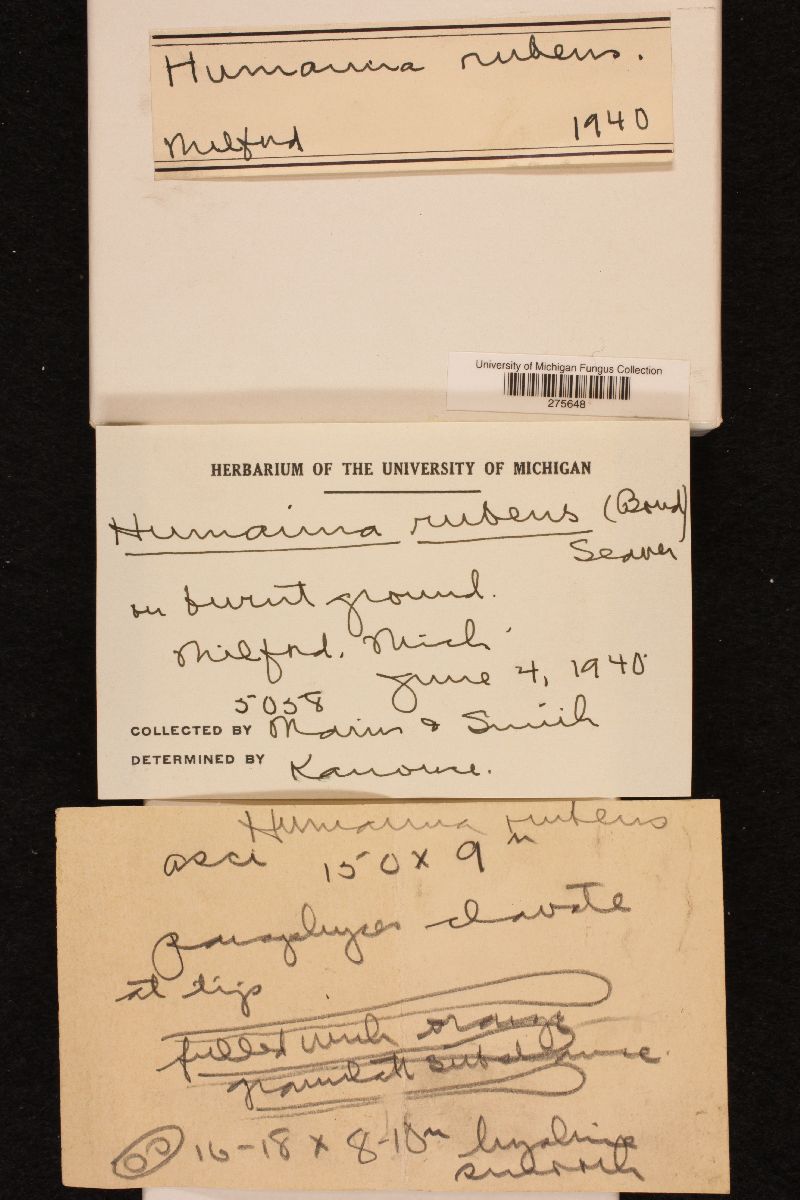 Humarina rubens.
Milford 1940
University of Michigan Fungus Collection
275648
HERBARIUM OF THE UNIVERSITY OF MICHIGAN
Humarina rubens (Boud)
Seaver
on burnt ground.
Milford. Mich.
June 4, 1940
5058
COLLECTED BY Mains & Smith
DETERMINED BY Kanouse.
Humarina rubens
asci 150 x 9 u
paraphyses clavate
at tips
filled with orange
granular substance
16-18 x 8-10 u hyaline
smooth